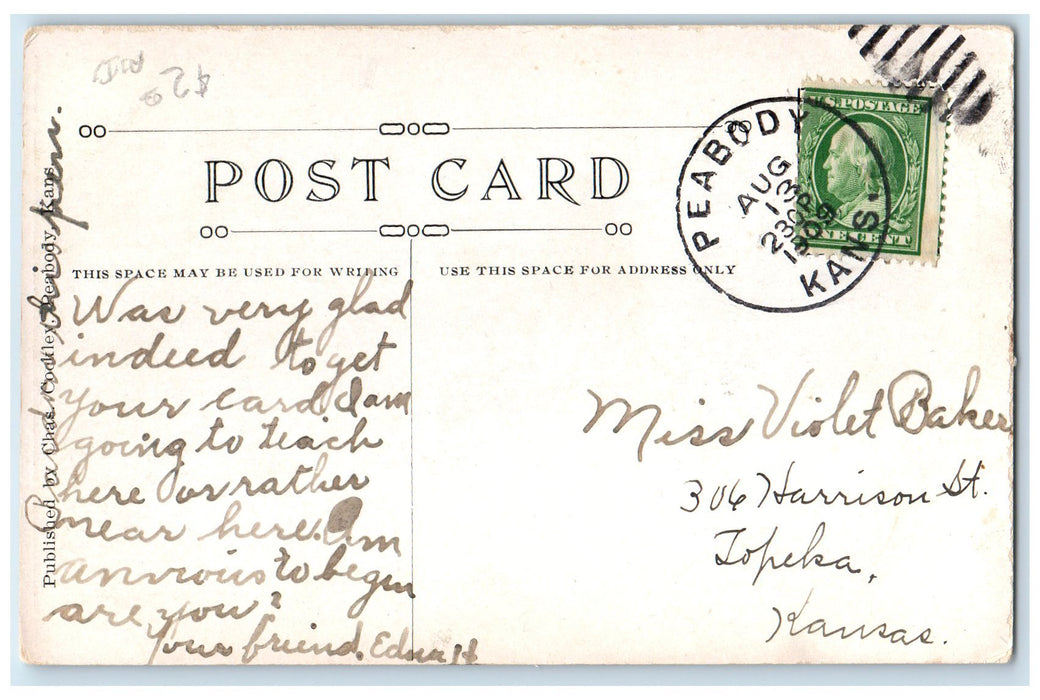 $2
POST CARD
THIS SPACE MAY BE USED FOR WRITING
USE THIS SPACE FOR ADDRESS ONLY
PEABODY
AUG
13
230P
1909
KANS.
U.S. POSTAGE
ONE CENT
Published by Chas. Cockley, Peabody, Kans.
pen.
Was very glad
indeed to get
your card I am
going to teach
here or rather
near here. Am
anxious to begin
are you?
Your friend, Edna H
Miss Violet Baker
306 Harrison St.
Topeka,
Kansas.